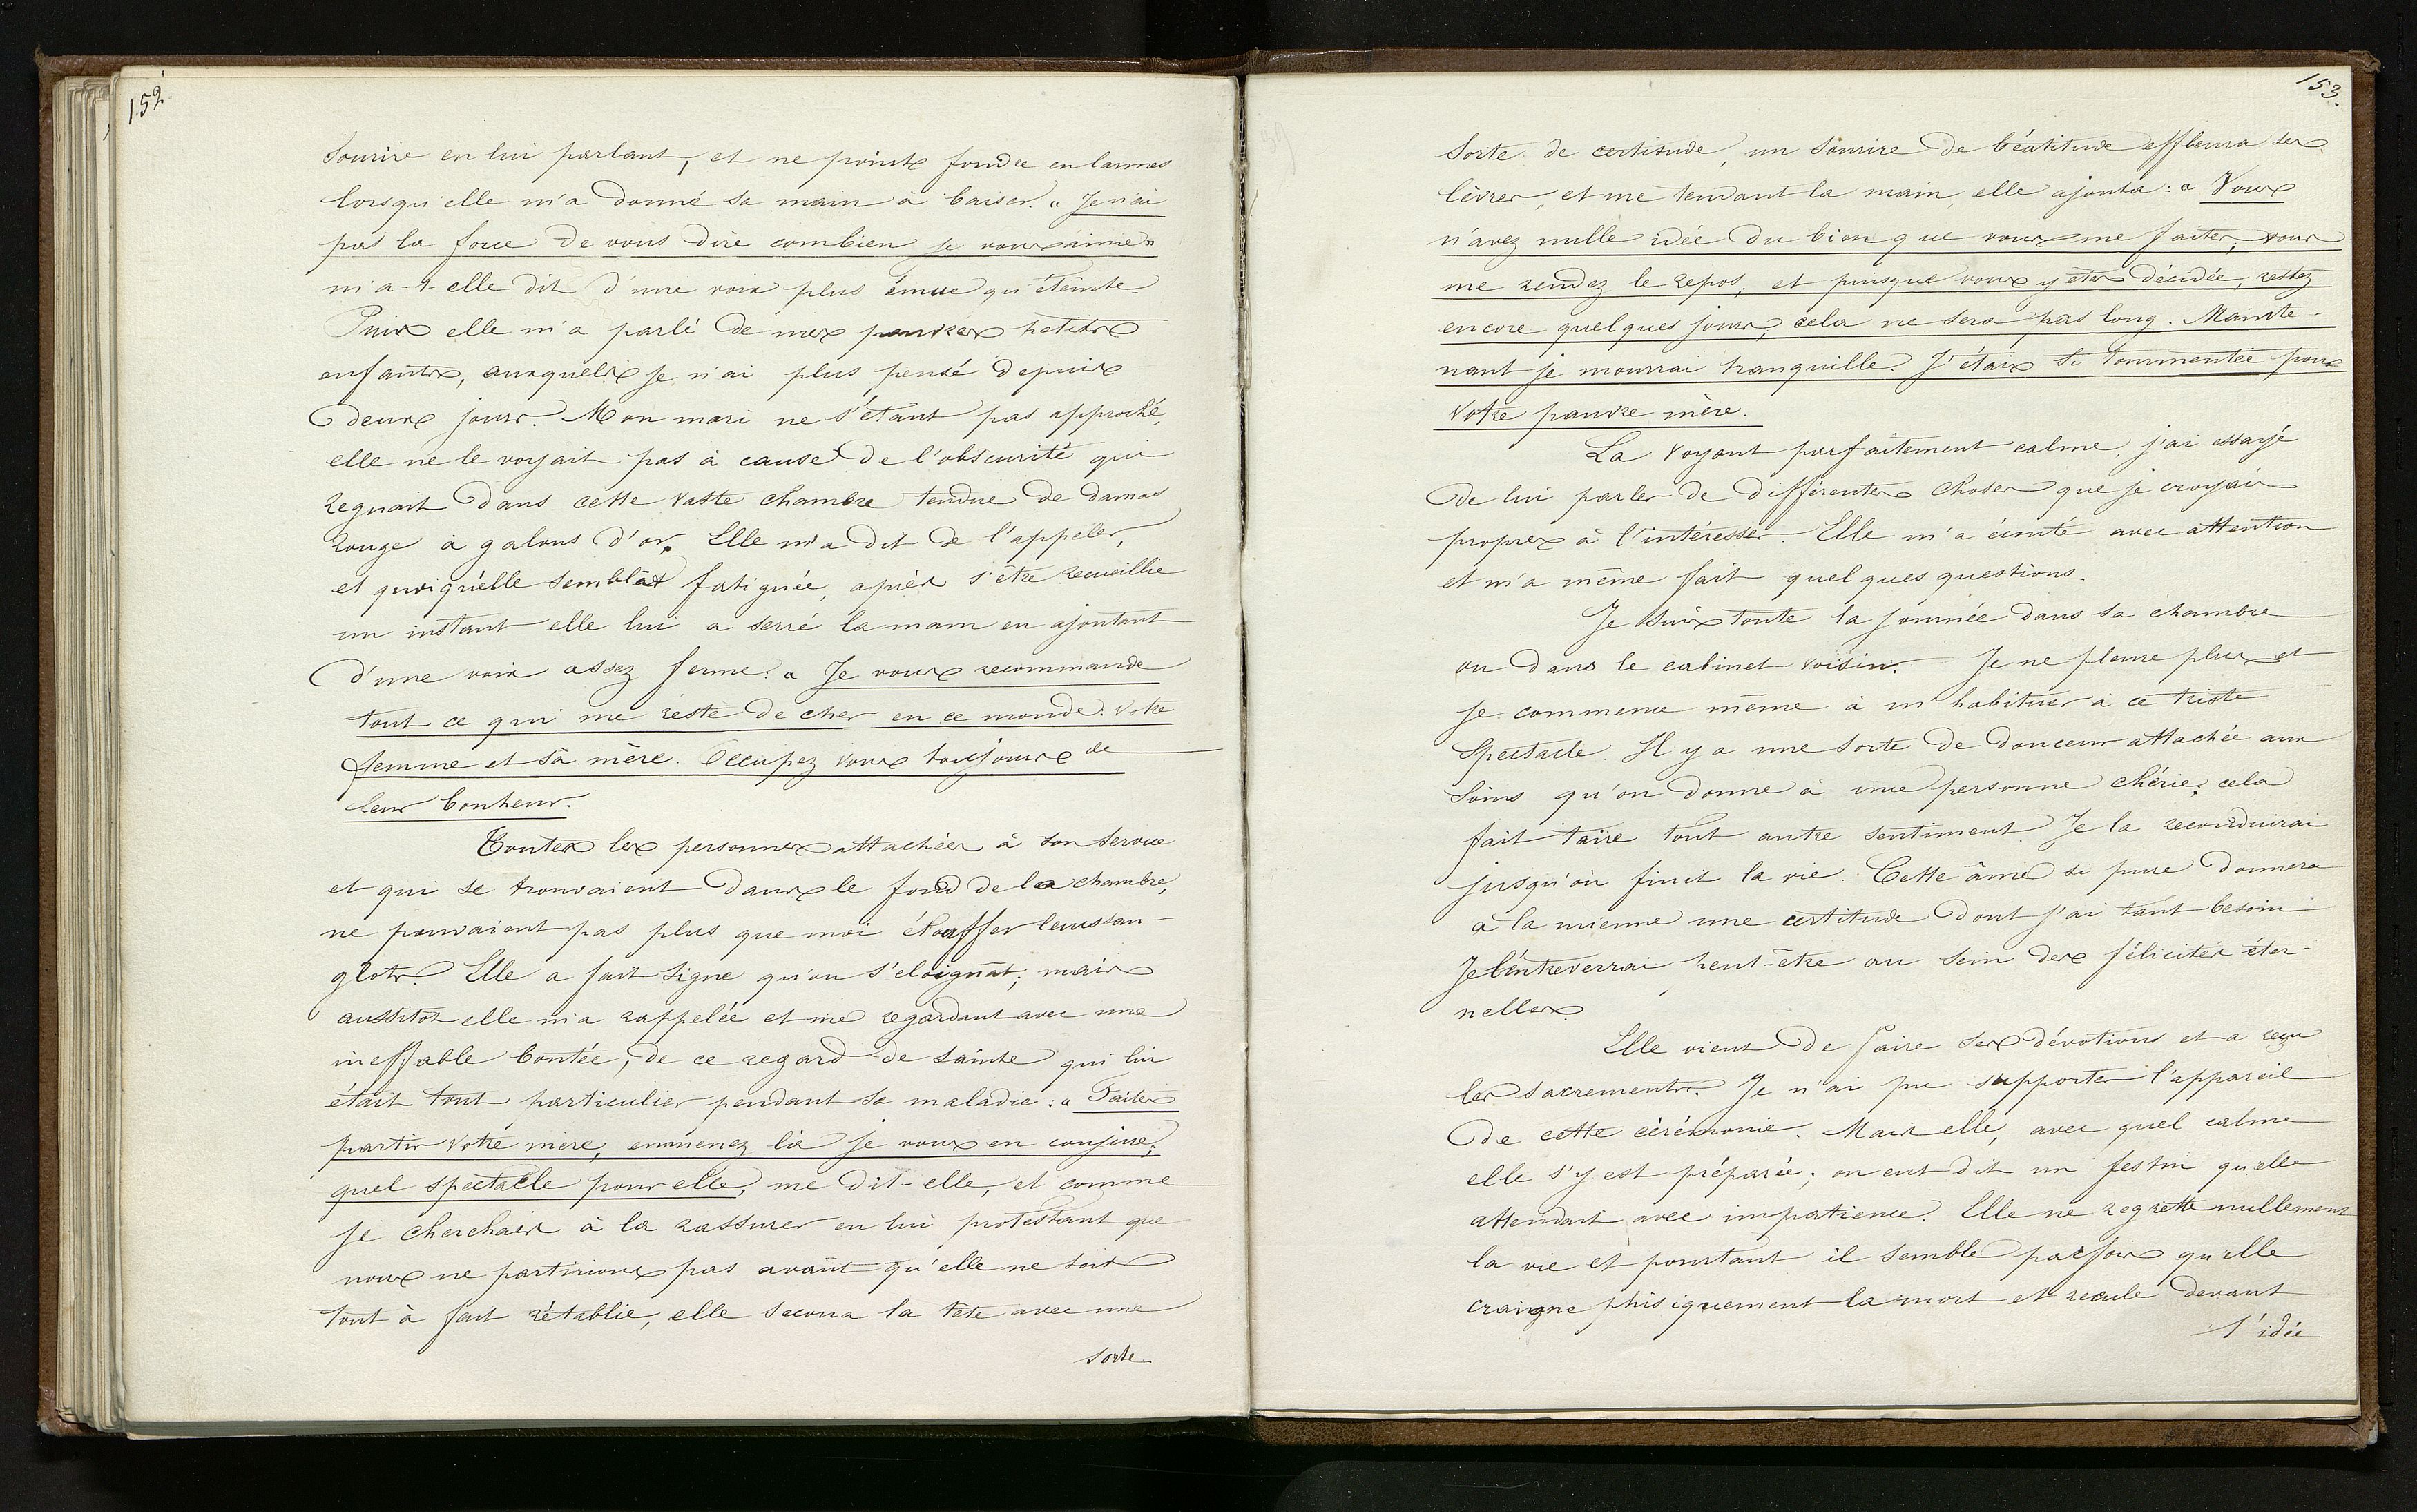 152.
sourire en lui parlant, et ne point fondre en larmes
lorsqu'elle m'a donné sa main à baiser. « Je n'ai
pas la force de vous dire combien je vous aime »
m'a-t-elle dit d'une voix plus émue qu'éteinte.
Puis elle m'a parlé de mes pauvres petits
enfants, auxquels je n'ai plus pensé depuis
deux jours. Mon mari ne s'étant pas approché,
elle ne le voyait pas à cause de l'obscurité qui
regnait dans cette vaste chambre tendue de damas
rouge à galons d'or. Elle m'a dit de l'appeler,
et quoiqu'elle semblât fatiguée, après s'être recueillie
un instant elle lui a serré la main en ajoutant
d'une voix assez ferme: « Je vous recommande
tout ce qui me reste de cher en ce monde: votre
femme et sa mère. Occupez vous toujours de
leur bonheur.
Toutes les personnes attachées à son service
et qui se trouvaient dans le fond de la chambre,
ne pouvaient pas plus que moi étouffer leurs san-
glots. Elle a fait signe qu'on s'eloignât; mais
aussitot elle m'a rappelée et me regardant avec une
ineffable bontée, de ce regard de sainte qui lui
était tout particulier pendant sa maladie: « Faites
partir votre mère, emmenez là je vous en conjure;
quel spectacle pour elle, me dit-elle, et comme
je cherchais à la rassurer en lui protestant que
nous ne partirions pas avant qu'elle ne soit
tout à fait rétablie, elle secoua la tête avec une
sorte
153.
sorte de certitude, un sourire de béatitude effleura ses
lèvres, et me tendant la main, elle ajouta: « Vous
n'avez nulle idée du bien que vous me faites, vous
me rendez le repos, et puisque vous y êtes décidée, restez
encore quelques jours, cela ne sera pas long. Mainte-
nant je mourrai tranquille. J'étais si tourmentée pour
votre pauvre mère.
La voyant parfaitement calme, j'ai essayé
de lui parler de différentes choses que je croyais
propres à l'intéresser. Elle m'a écouté avec attention
et m'a même fait quelques questions.
Je suis toute la journée dans sa chambre
ou dans le cabinet voisin. Je ne pleure plus et
je commence même à m'habituer à ce triste
spectacle. Il y a une sorte de douceur attachée aux
soins qu'on donne à une personne chérie; cela
fait taire tout autre sentiment. Je la reconduirai
jusqu'où finit la vie. Cette âme si pure donnera
à la mienne une certitude dont j'ai tant besoin.
Je l'entreverrai peut-être au sein des félicités éter-
nelles.
Elle vient de faire ses dévotions et a reçu
les sacrements. Je n'ai pu supporter l'appareil
de cette cérémonie. Mais elle, avec quel calme
elle s'y est préparée; on eut dit un festin qu'elle
attendait avec impatience. Elle ne regrette nullement
la vie et pourtant il semble parfois qu'elle
craigne phisiquement la mort et recule devant
l'idée